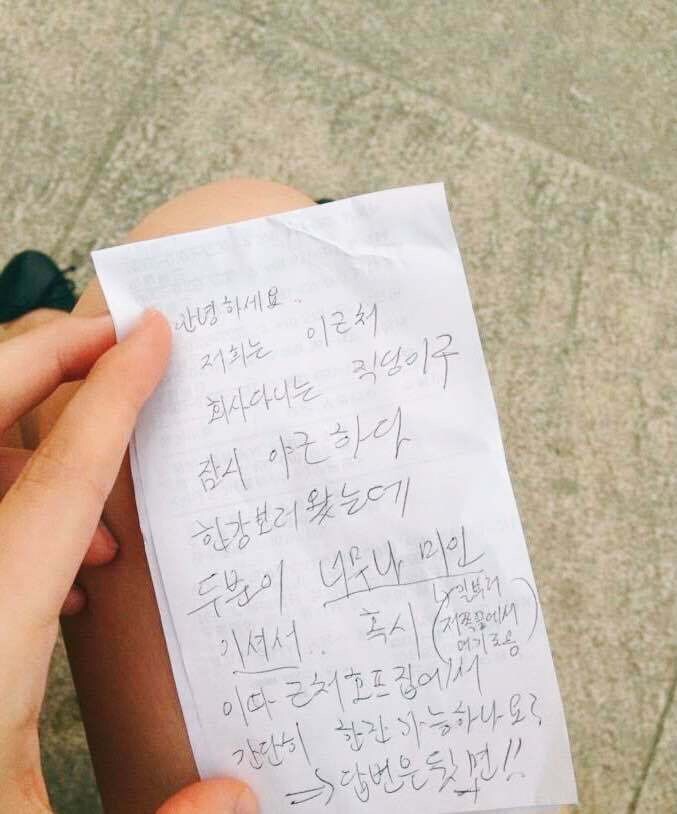 안녕하세요..
저희는 이근처
회사다니는 직딩이구
잠시 야근하다
한강보러 왔는데
두분이 너무나 미인
이셔서.. 혹시
(↳일부러
저쪽끝에서
여기로옴)
이따 근처호프집에서
간단히 한잔 가능하나요?
⇒ 답변은 뒷면!!